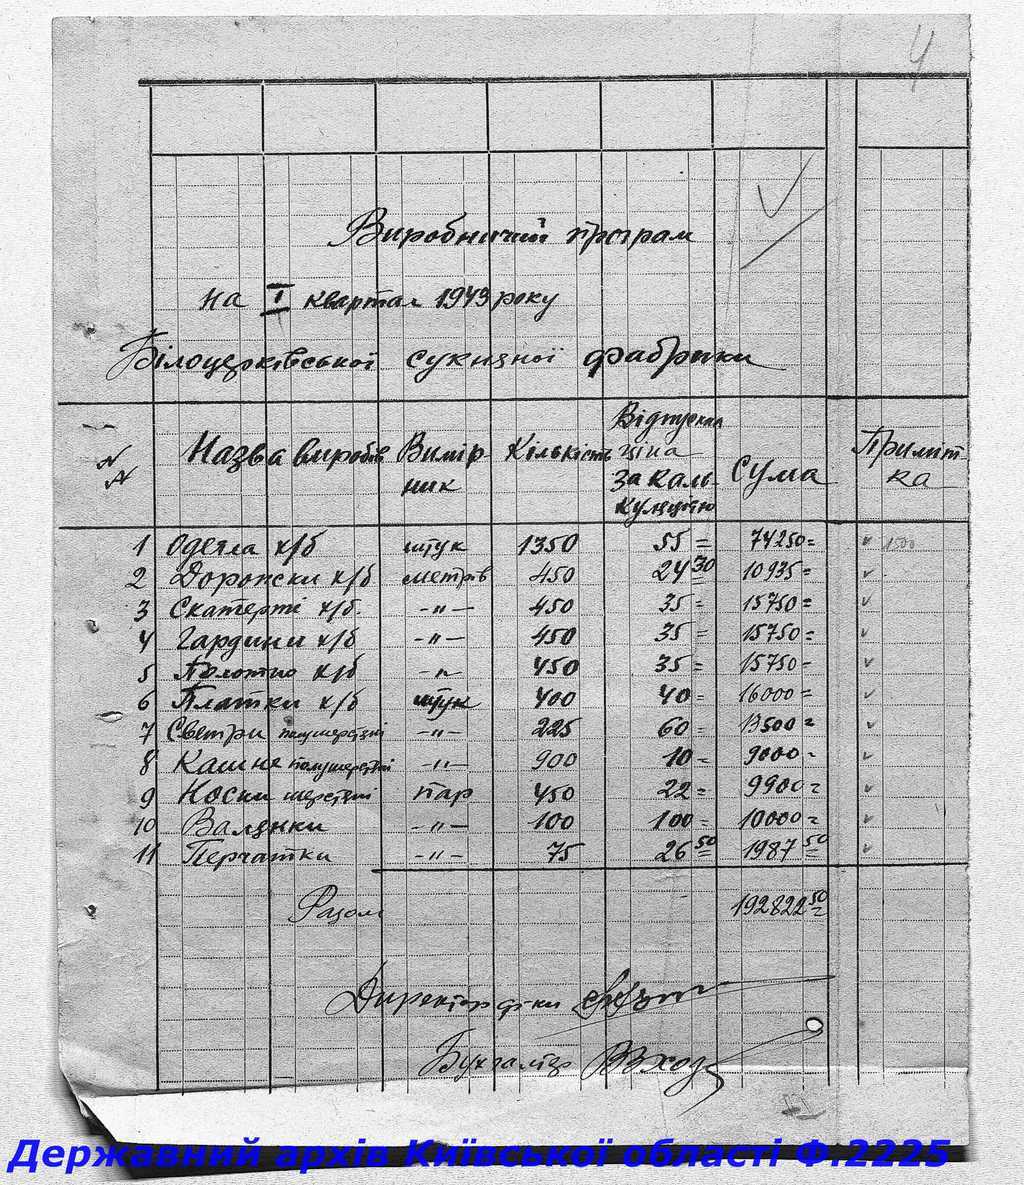 4
Виробничий програм
на I квартал 1943 року
Білоцерківської сукняної фабрики
NN Назва виробів Вимірник Кількість Відпускна ціна за калькуляцією Сума Примітка
1 Одеяла х/б штук 1350 55= 74250= v 1500
2 Дорожки х/б метрів 450 24 30 10935= v
3 Скатерті х/б. -"- 450 35= 15750= v
4 Гардини х/б -"- 450 35= 15750= v
5 Полотно х/б -"- 450 35= 15750= v
6 Платки х/б штук 400 40= 16000= v
7 Светри полушерстяні -"- 225 60= 13500= v
8 Кашне полушерстяні -"- 900 10= 9000= v
9 Носки шерстяні пар 450 22= 9900= v
10 Валянки -"- 100 100= 10000= v
11 Перчатки -"- 75 26 50 1987 50 v
Разом 192822 50
Директор ф-ки
Бухгалтер
Державний архів Київської області Ф.2225